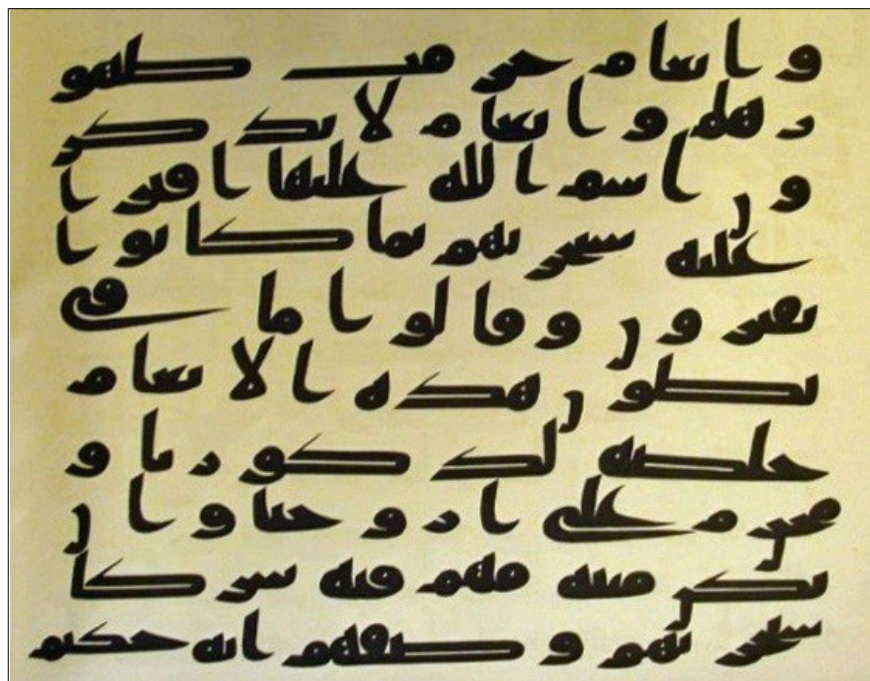 وانعام حرمت ظهو
رها وانعام لا يذكر
ون اسم الله عليها افترا
عليه سيجزيهم بما كانوا
يفترون وقالوا ما في
بطون هذه الانعام
خلصه لذكورنا و
محرم على ازوجنا وان
يكن ميته فهم فيه شركا
سيجزيهم وصفهم انه حكيم